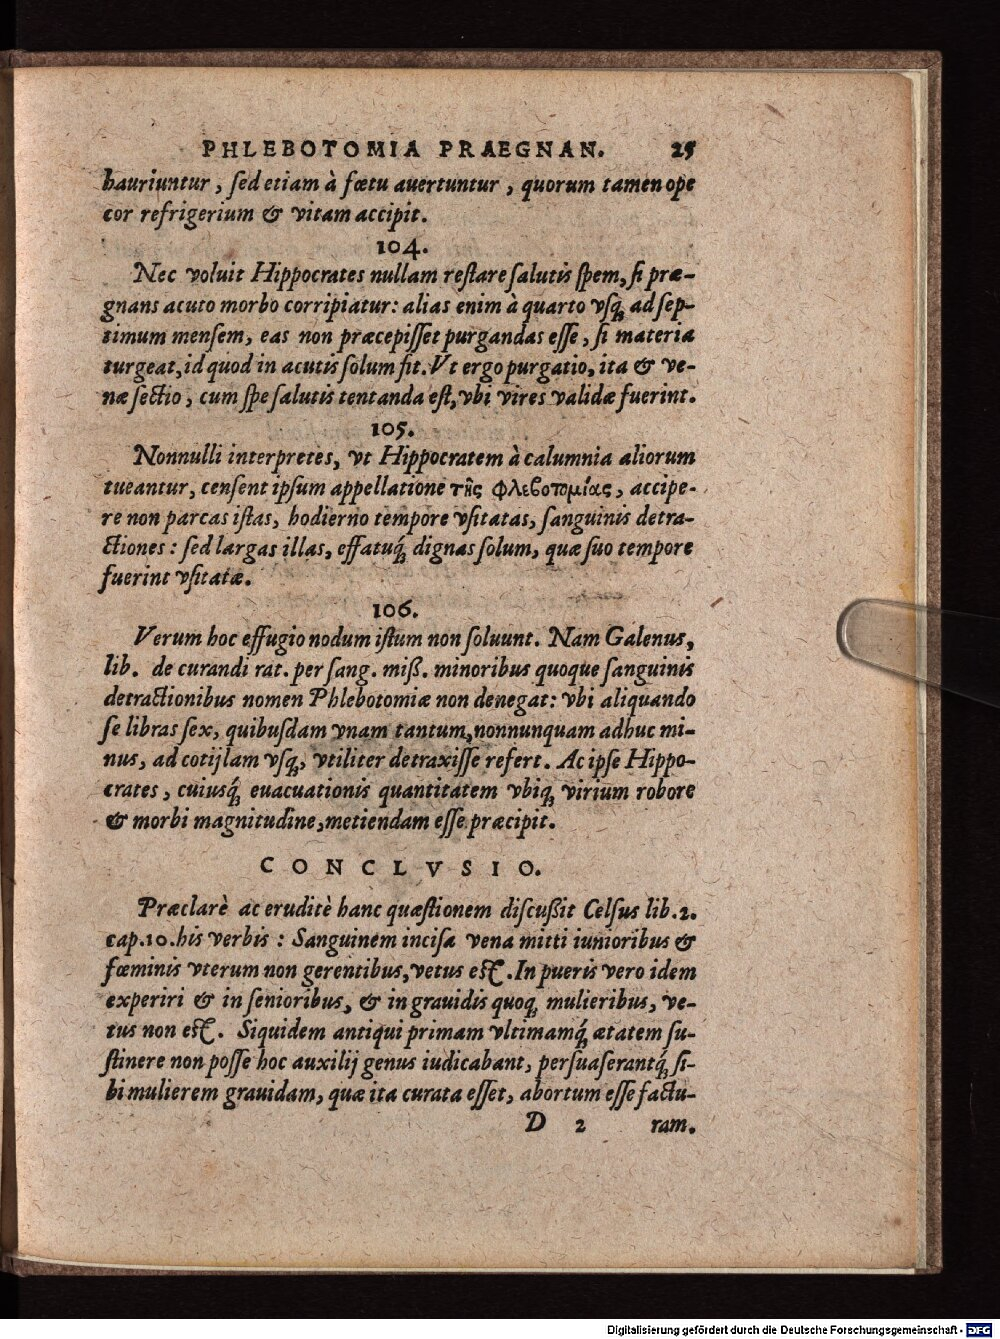 PHLEBOTOMIA PRAEGNAN. 25
hauriuntur, ſed etiam à fœtu auertuntur, quorum tamen ope
cor refrigerium & vitam accipit.
104.
Nec voluit Hippocrates nullam reſtare ſalutis ſpem, ſi præ-
gnans acuto morbo corripiatur: alias enim à quarto vſq́; ad ſep-
timum menſem, eas non præcepiſſet purgandas eſſe, ſi materia
turgeat, id quod in acutis ſolum fit. Vt ergo purgatio, ita & ve-
næ ſectio, cum ſpe ſalutis tentanda eſt, vbi vires validæ fuerint.
105.
Nonnulli interpretes, vt Hippocratem à calumnia aliorum
tueantur, cenſent ipſum appellatione τῆς φλεβοτομίας, accipe-
re non parcas iſtas, hodierno tempore vſitatas, ſanguinis detra-
ctiones: ſed largas illas, effatuq́; dignas ſolum, quæ ſuo tempore
fuerint vſitatæ.
106.
Verum hoc effugio nodum iſtum non ſoluunt. Nam Galenus,
lib. de curandi rat. per ſang. miß. minoribus quoque ſanguinis
detractionibus nomen Phlebotomiæ non denegat: vbi aliquando
ſe libras ſex, quibuſdam vnam tantum, nonnunquam adhuc mi-
nus, ad cotijlam vſq;, vtiliter detraxiſſe refert. Ac ipſe Hippo-
crates, cuiusq́; euacuationis quantitatem vbiq; virium robore
& morbi magnitudine, metiendam eſſe præcipit.
CONCLVSIO.
Præclarè ac eruditè hanc quæſtionem diſcußit Celſus lib. 2.
cap. 10. his verbis: Sanguinem inciſa vena mitti iunioribus &
fœminis vterum non gerentibus, vetus eſt. In pueris vero idem
experiri & in ſenioribus, & in grauidis quoq; mulieribus, ve-
tus non eſt. Siquidem antiqui primam vltimamq́; ætatem ſu-
ſtinere non poſſe hoc auxilij genus iudicabant, perſuaſerantq́; ſi-
bi mulierem grauidam, quæ ita curata eſſet, abortum eſſe factu-
D 2 ram.
Digitalisierung gefördert durch die Deutsche Forschungsgemeinschaft - DFG